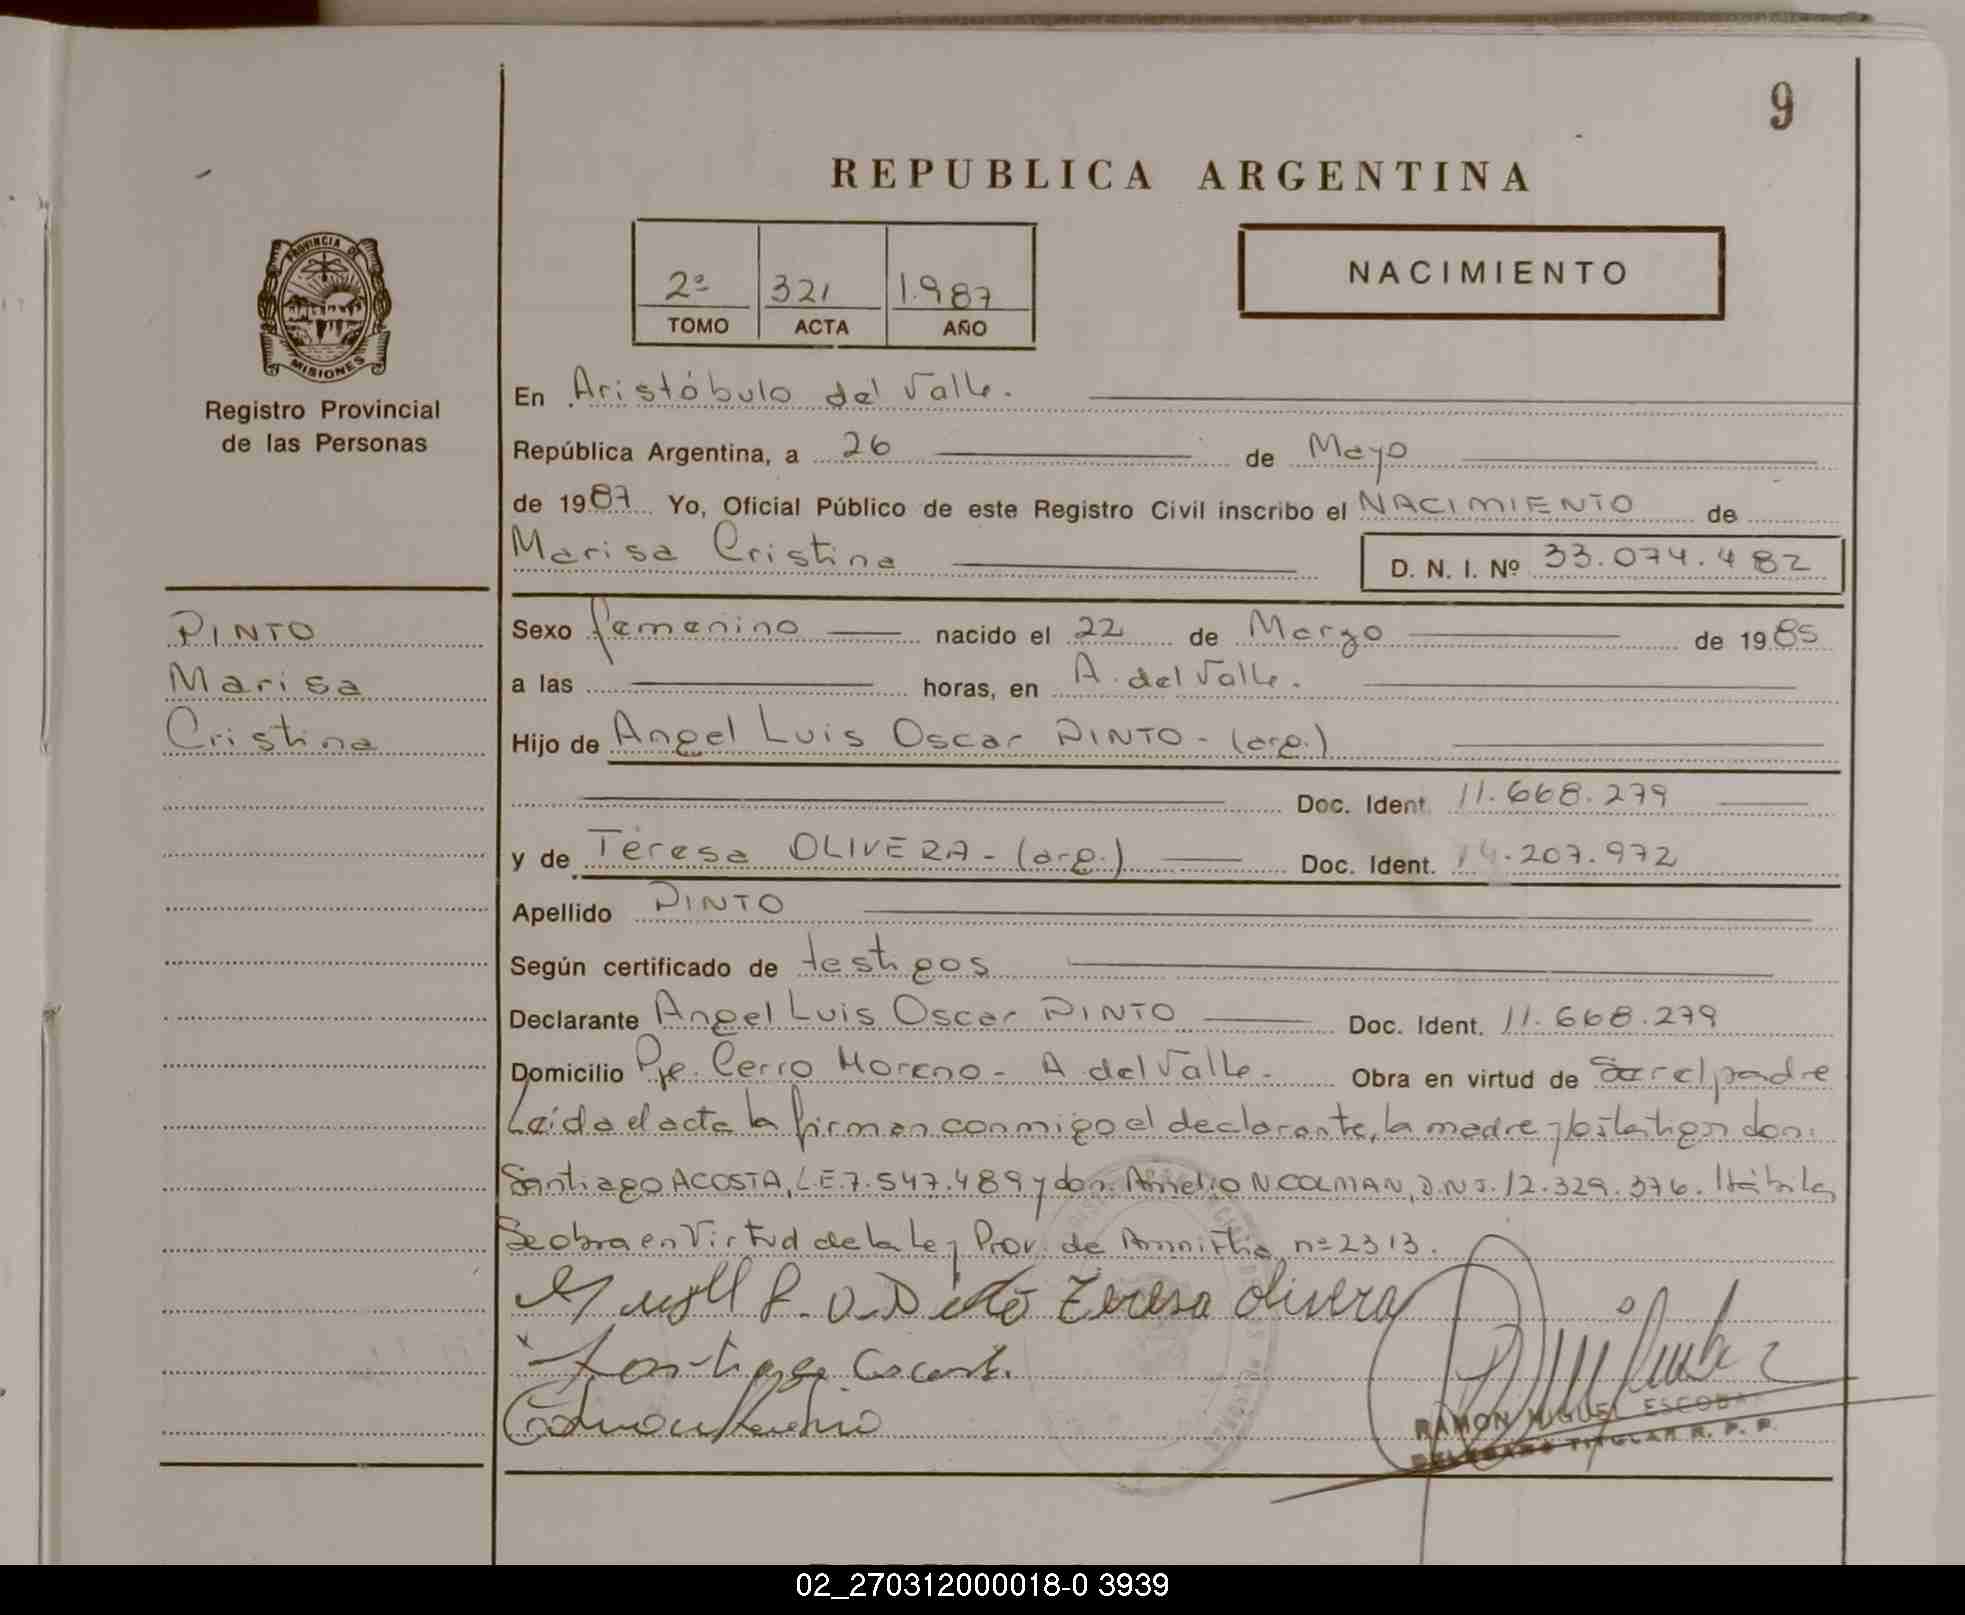 9
REPUBLICA ARGENTINA
PROVINCIA DE
MISIONES
Registro Provincial
de las Personas
2º 321 1.987
TOMO ACTA AÑO
NACIMIENTO
En Aristóbulo del Valle.
República Argentina, a 26 de Mayo
de 1987 Yo, Oficial Público de este Registro Civil inscribo el NACIMIENTO de
Marisa Cristina D. N. I. Nº 33.074.482
PINTO
Marisa
Cristina
Sexo femenino nacido el 22 de Marzo de 1985
a las horas, en A. del Valle.
Hijo de Angel Luis Oscar PINTO - (arg.)
Doc. Ident. 11.668.279
y de Teresa OLIVERA - (arg.) Doc. Ident. 14.207.972
Apellido PINTO
Según certificado de testigos
Declarante Angel Luis Oscar PINTO Doc. Ident. 11.668.279
Domicilio Pje. Cerro Moreno - A del Valle - Obra en virtud de Ser el padre
Leída el acta la firman conmigo el declarante, la madre y los testigos don:
Santiago ACOSTA, L.E. 7.547.489 y don Amelio N. COLMAN, D.N.I. 12.329.376. Hábiles
Se obra en Virtud de la Ley Prov. de Amnistía nº 2313.
Teresa Olivera
RAMON MIGUEL ESCOBAR
DELEGADO TITULAR R. P. P.
02_270312000018-0 3939